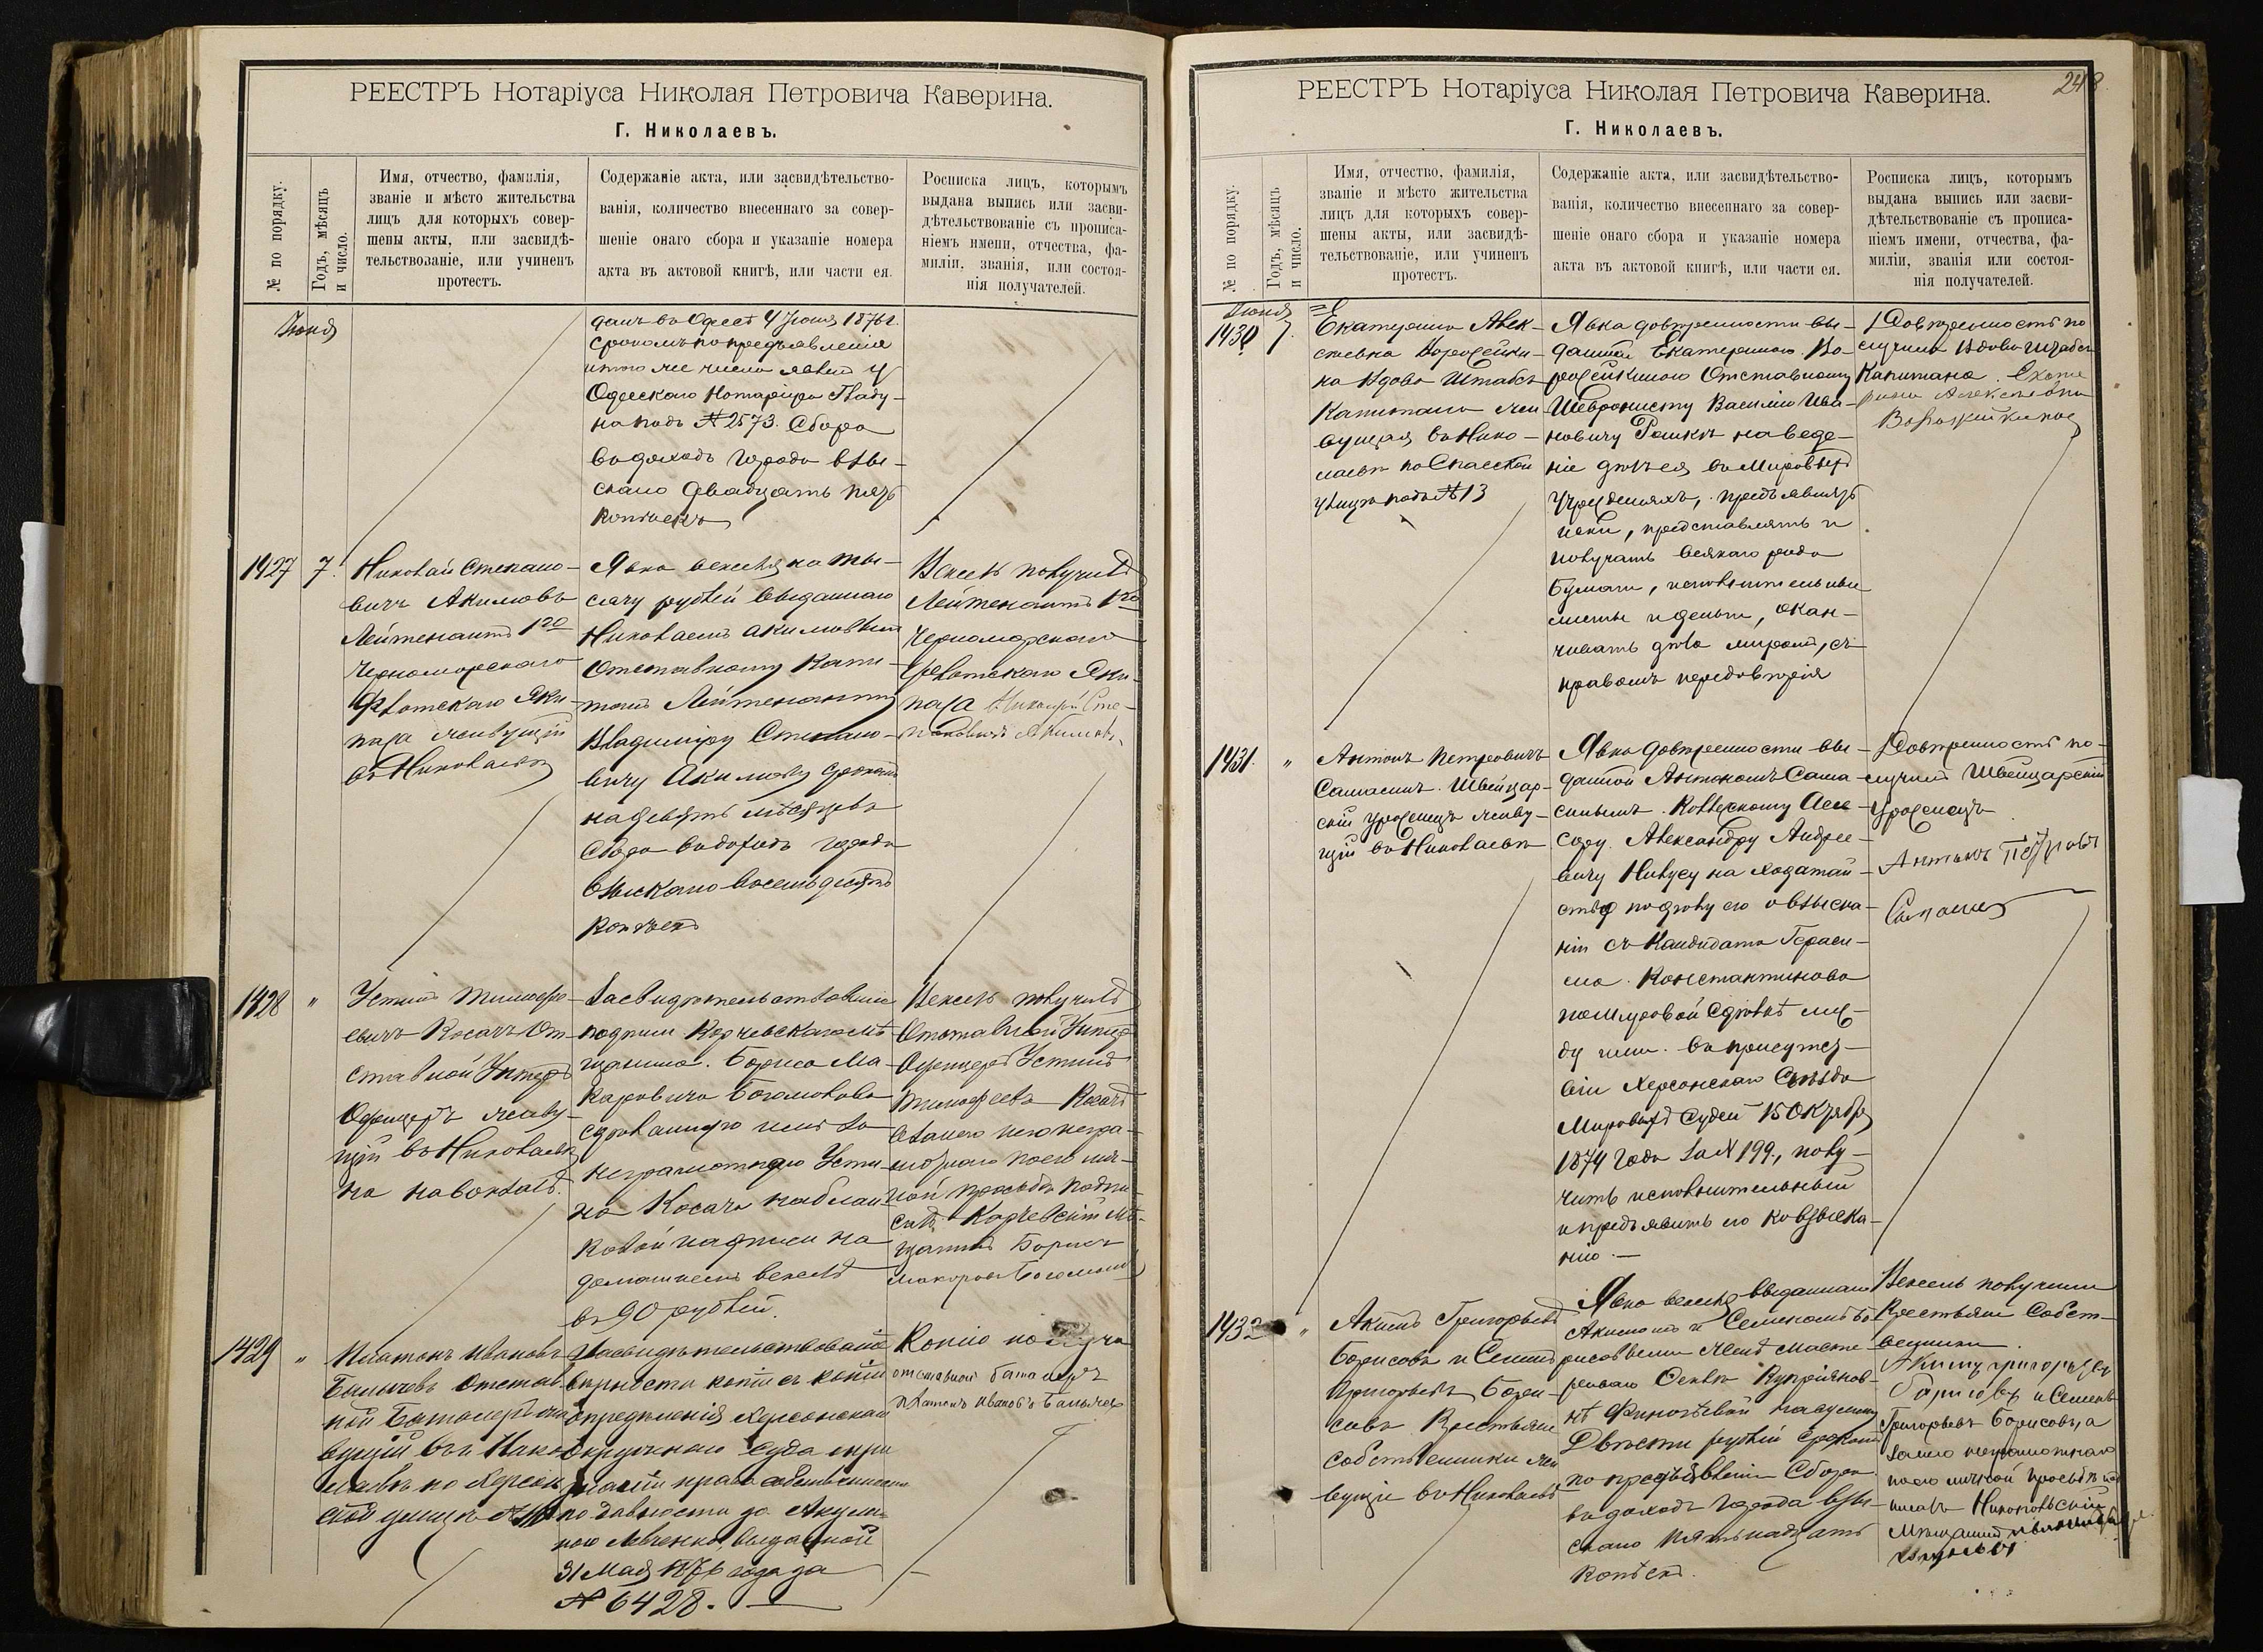 РЕЕСТРЪ Нотаріуса Николая Петровича Каверина.
Г. Николаевъ.
№ по порядку.
Годъ, мѣсяцъ
и число.
Имя, отчество, фамилія,
званіе и мѣсто жительства
лицъ для которыхъ совер-
шены акты, или засвидѣ-
тельствованіе, или учиненъ
протестъ.
Содержаніе акта, или засвидѣтельство-
ванія, количество внесеннаго за совер-
шеніе онаго сбора и указаніе номера
акта въ актовой книгѣ, или части ея.
Росписка лицъ, которымъ
выдана выпись или засви-
дѣтельствованіе съ прописа-
ніемъ имени, отчества, фа-
миліи, званія, или состоя-
нія получателей.
Іюня
данъ въ Одессѣ 4 Іюня 1876 г.
срокомъ по предъявленіи
того же числа явленъ у
Одесскаго Нотаріуса
подъ № 2573. Сбора
въ доходъ города взы-
скано двадцать пять
копѣекъ
1427
7.
Николай Степано-
вичъ Акимовъ
Лейтенантъ 1го
Черноморскаго
Флотскаго Эки-
пажа живущій
въ Николаевѣ
Явка векселя на ты-
сячу рублей выданнаго
Николаемъ Акимовымъ
Отставному Капи-
танъ Лейтенанту
Владиміру Степано-
вичу Акимову срокомъ
на девять мѣсяцевъ
Сбора въ доходъ города
взыскано восемьдесятъ
копѣекъ
Вексель получилъ
Лейтенантъ 1го
Черноморскаго
Флотскаго Эки-
пажа Николай Сте-
пановичъ Акимовъ
1428
"
Устинъ Тимофе-
евичъ Косачъ От-
ставной Унтеръ
Офицеръ живу-
щій въ Николаевѣ
на вокзалѣ.
Засвидѣтельствованіе
подписи Корчевскаго мѣ-
щанина Бориса Ма-
каровича Богомолова
сдѣланную имъ за
неграмотнаго Усти-
на Косача на блан-
ковой надписи на
домашнемъ векселѣ
въ 90 рублей.
Вексель получилъ
Отставной Унтеръ
Офицеръ Устинъ
Тимофеевъ Косачъ
а за него неграм-
отнаго по его лич-
ной просьбѣ подпи-
салъ Корчевскій мѣ-
щанинъ Борисъ
Макаровъ Богомоловъ
1429
"
Платонъ Ивановъ
Балычевъ Отстав-
ной Баталеръ жи-
вущій въ Нико-
лаевѣ по Херсон-
ской улицѣ
Засвидѣтельствованіе
вѣрности копіи съ копіи
опредѣленія Херсонскаго
Окружнаго Суда о при-
знаніи права собственности
по давности за Акули-
ною Левченко, выданной
31 Мая 1876 года за
№ 6428.
Копію получилъ
отставной баталеръ
Платонъ Ивановъ Балычевъ
248
РЕЕСТРЪ Нотаріуса Николая Петровича Каверина.
Г. Николаевъ.
№ по порядку.
Годъ, мѣсяцъ
и число.
Имя, отчество, фамилія,
званіе и мѣсто жительства
лицъ для которыхъ совер-
шены акты, или засвидѣ-
тельствованіе, или учиненъ
протестъ.
Содержаніе акта, или засвидѣтельство-
ванія, количество внесеннаго за совер-
шеніе онаго сбора и указаніе номера
акта въ актовой книгѣ, или части ея.
Росписка лицъ, которымъ
выдана выпись или засви-
дѣтельствованіе съ прописа-
ніемъ имени, отчества, фа-
миліи, званія или состоя-
нія получателей.
Іюня
1430
7.
Екатерина Алек-
сѣевна Ворожейки-
на Вдова Штабсъ
Капитана жи-
вущая въ Нико-
лаевѣ по Спасской
улицѣ подъ № 13
Явка довѣренности вы-
данной Екатериною Во-
рожейкиною Отставному
Шевронисту Василію Ива-
новичу Рашкѣ на веде-
ніе дѣлъ ея въ Мировыхъ
Учрежденіяхъ, предъявлять
иски, представлять и
получать всякаго рода
бумаги, исполнительные
листы и деньги, окан-
чивать дѣла миромъ, съ
правомъ передовѣрія
Довѣренность по
лучила Вдова Штабсъ
Капитана Екате
рина Алексѣевна
Ворожейкина
1431.
"
Антонъ Петровичъ
Самасинъ Швейцар-
скій уроженецъ живу-
щій въ Николаевѣ
Явка довѣренности вы-
данной Антономъ Сама-
синымъ Коллежскому Асе-
сору Александру Андре-
евичу Нивусу на ходатай-
ство по дѣлу его о взыска-
ніи съ Кандидата Гераси-
ма Константинова
по Мировой Сдѣлкѣ меж-
ду ними въ присутст-
віи Херсонскаго Съѣзда
Мировыхъ Судей 15 Октября
1874 Года за № 199, полу-
чить исполнительный
и предъявить его ко взыска-
нію.—
Довѣренность по-
лучилъ Швейцарскій
Уроженецъ
Антонъ Петровъ
1432
"
Акимъ Григорьевъ
Борисовъ и Семенъ
Григорьевъ Бори-
совъ Крестьяне
собственники жи-
вущіе въ Николаевѣ
Явка векселя выданнаго
Акимомъ и Семеномъ Бо-
рисовыми женѣ масте-
роваго Феклѣ Купріянов-
нѣ Финогѣевой на сумму
Двѣсти рублей срокомъ
по предъявленіи Сбора
въ доходъ города взы-
скано пятнадцать
копѣекъ.
Вексель получили
Крестьяне Собст-
венники
Акимъ Григорьевъ
Борисовъ и Семенъ
Григорьевъ Борисовъ, а
за него неграмотнаго
по его личной просьбѣ под
писалъ Никопольскій
Мѣщанинъ